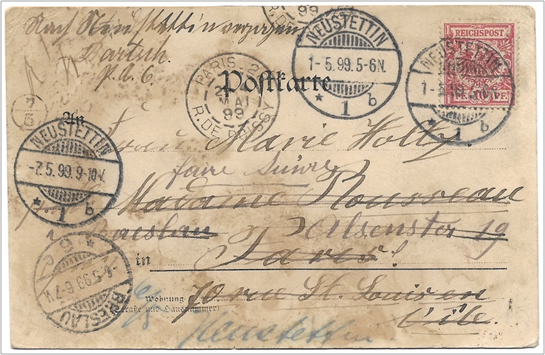 Nach Neustettin verzogen
Bartsch
NEUSTETTIN
1-5.99.5-6N.
* 1 b
REICHSPOST
NEUSTETTIN
* 1 b
PARIS
MAI
99
R. DE POISSY
99
Postkarte
7/5
An
Frau Marie Holtz
NEUSTETTIN
-7.5.99.9-10V.
* 1 b
faire suivre
Madame Rousseau
Breslau Alsenstr 19
Paris
in
BRESLAU
-6.5.99.6-7N.
70 rue St. Louis en
Wohnung
(Straße und Hausnummer)
l'île
Neustettin